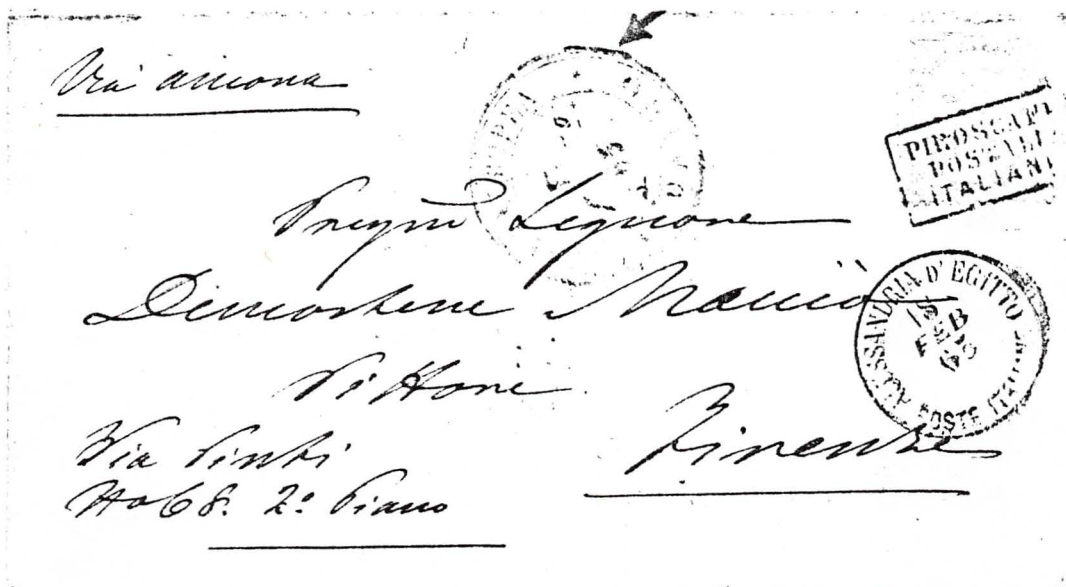 Via Ancona
PIROSCAFI
POSTALI
ITALIANI
Pregmo Signore
Demostene Macciò
Pittore
ALESSANDRIA D'EGITTO
FEB
POSTE ITALIANE
Firenze
Via Pinti
No 68. 2º Piano